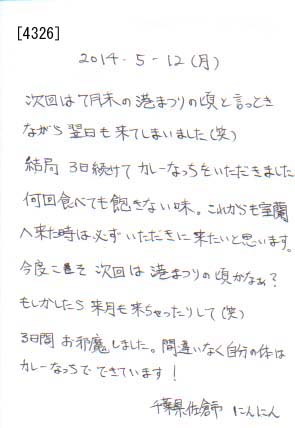 [4326]
2014-5-12(月)
次回は7月末の港まつりの頃と言っとき
ながら翌日も来てしまいました(笑)
結局 3日続けてカレーなっちをいただきました
何回食べても飽きない味。これからも室蘭
へ来た時は必ずいただきに来たいと思います。
今度こそ 次回は港まつりの頃かなぁ?
もしかしたら来月も来ちゃったりして(笑)
3日間 お邪魔しました。間違いなく自分の体は
カレーなっちでできています!
千葉県佐倉市 にんにん